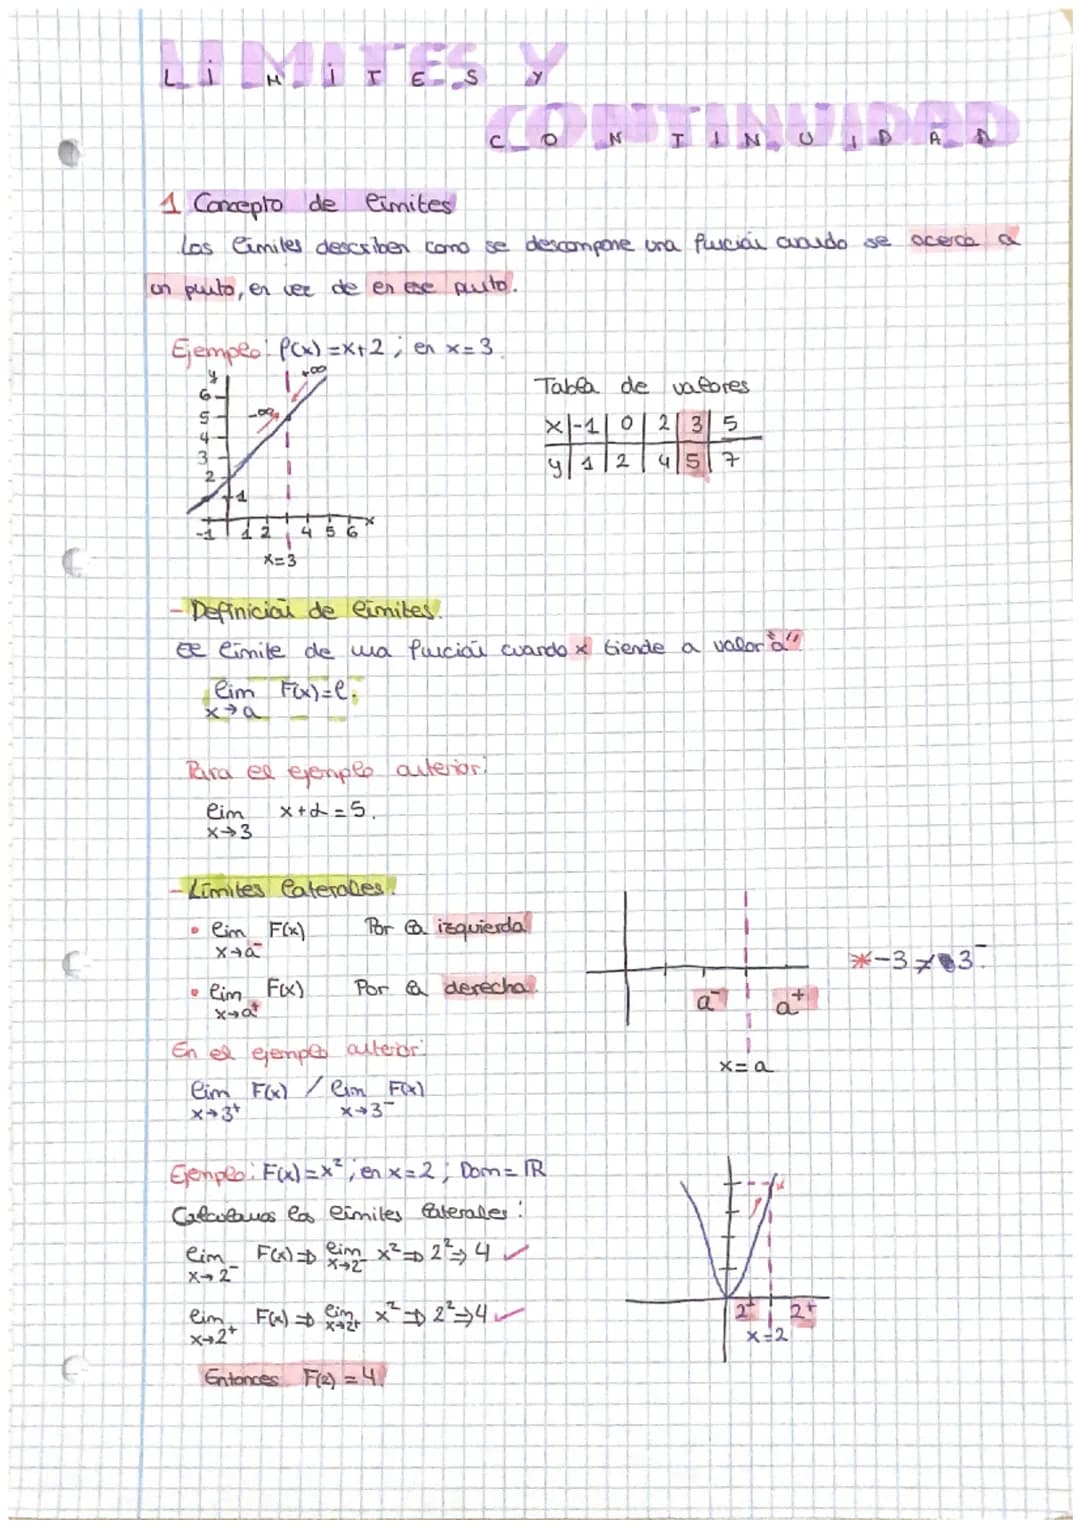 LÍMITES Y
CONTINUIDAD
1 Concepto de límites
Los límites describen como se descompone una función cuando se acerca a
un punto, en vez de en ese punto.
Ejemplo: f(x)=x+2; en x=3.
y
+∞
Tabla de valores
6
5
-∞
4
3
2
1
x | -1 | 0 | 2 | 3 | 5
y | 1 | 2 | 4 | 5 | 7
-1 1 2 4 5 6 x
x=3
- Definición de límites.
El límite de una función cuando x tiende a valor "a"
lim F(x)=l.
x→a
Para el ejemplo anterior:
lim x+2=5.
x→3
- Límites laterales:
• lim F(x) Por la izquierda
x→a⁻
• lim F(x) Por la derecha
x→a⁺
a⁻ a⁺
x=a
*-3 ≠ 3⁻.
En el ejemplo anterior:
lim F(x) / lim F(x)
x→3⁺ x→3⁻
Ejemplo: F(x)=x²; en x=2; Dom=ℝ
Calculamos los límites laterales:
lim F(x)⇒ lim x²⇒ 2²⇒ 4 ✓
x→2⁻ x→2⁻
lim F(x)⇒ lim x²⇒ 2²⇒4 ✓
x→2⁺ x→2⁺
2⁻ 2⁺
x=2
Entonces F(2)=4.